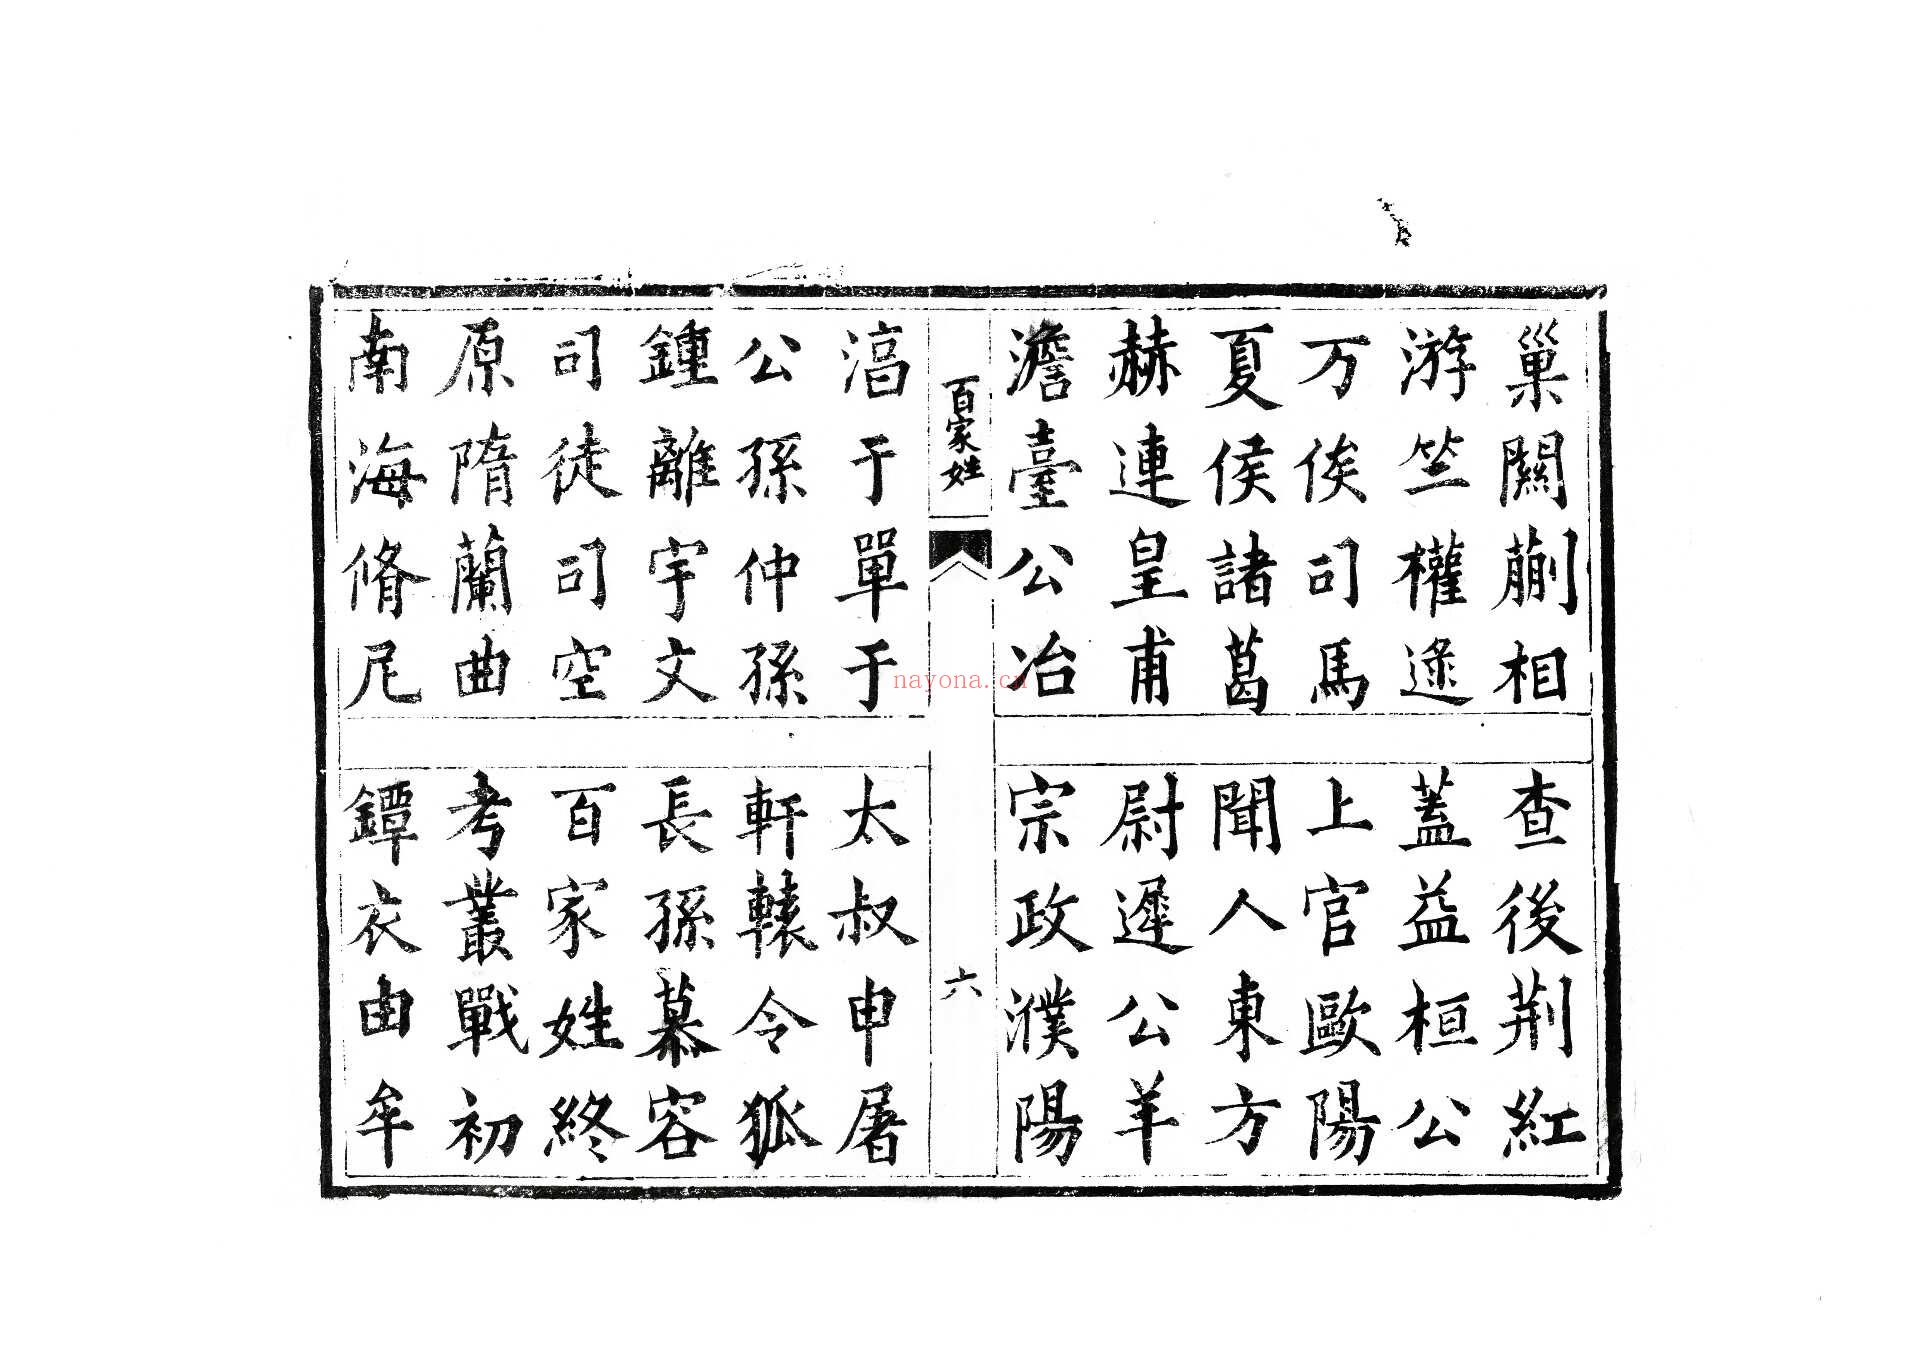 巢闗蒯相 查後荆紅
游竺權逯 蓋益桓公
万俟司馬 上官歐陽
夏侯諸葛 聞人東方
赫連皇甫 尉遲公羊
澹臺公冶 宗政濮陽
百家姓
六
湻于單于 太叔申屠
公孫仲孫 軒轅令狐
鍾離宇文 長孫慕容
司徒司空 百家姓終
原隋蘭曲 考叢戰初
南海脩尼 鐔衣由牟
nayona.cn